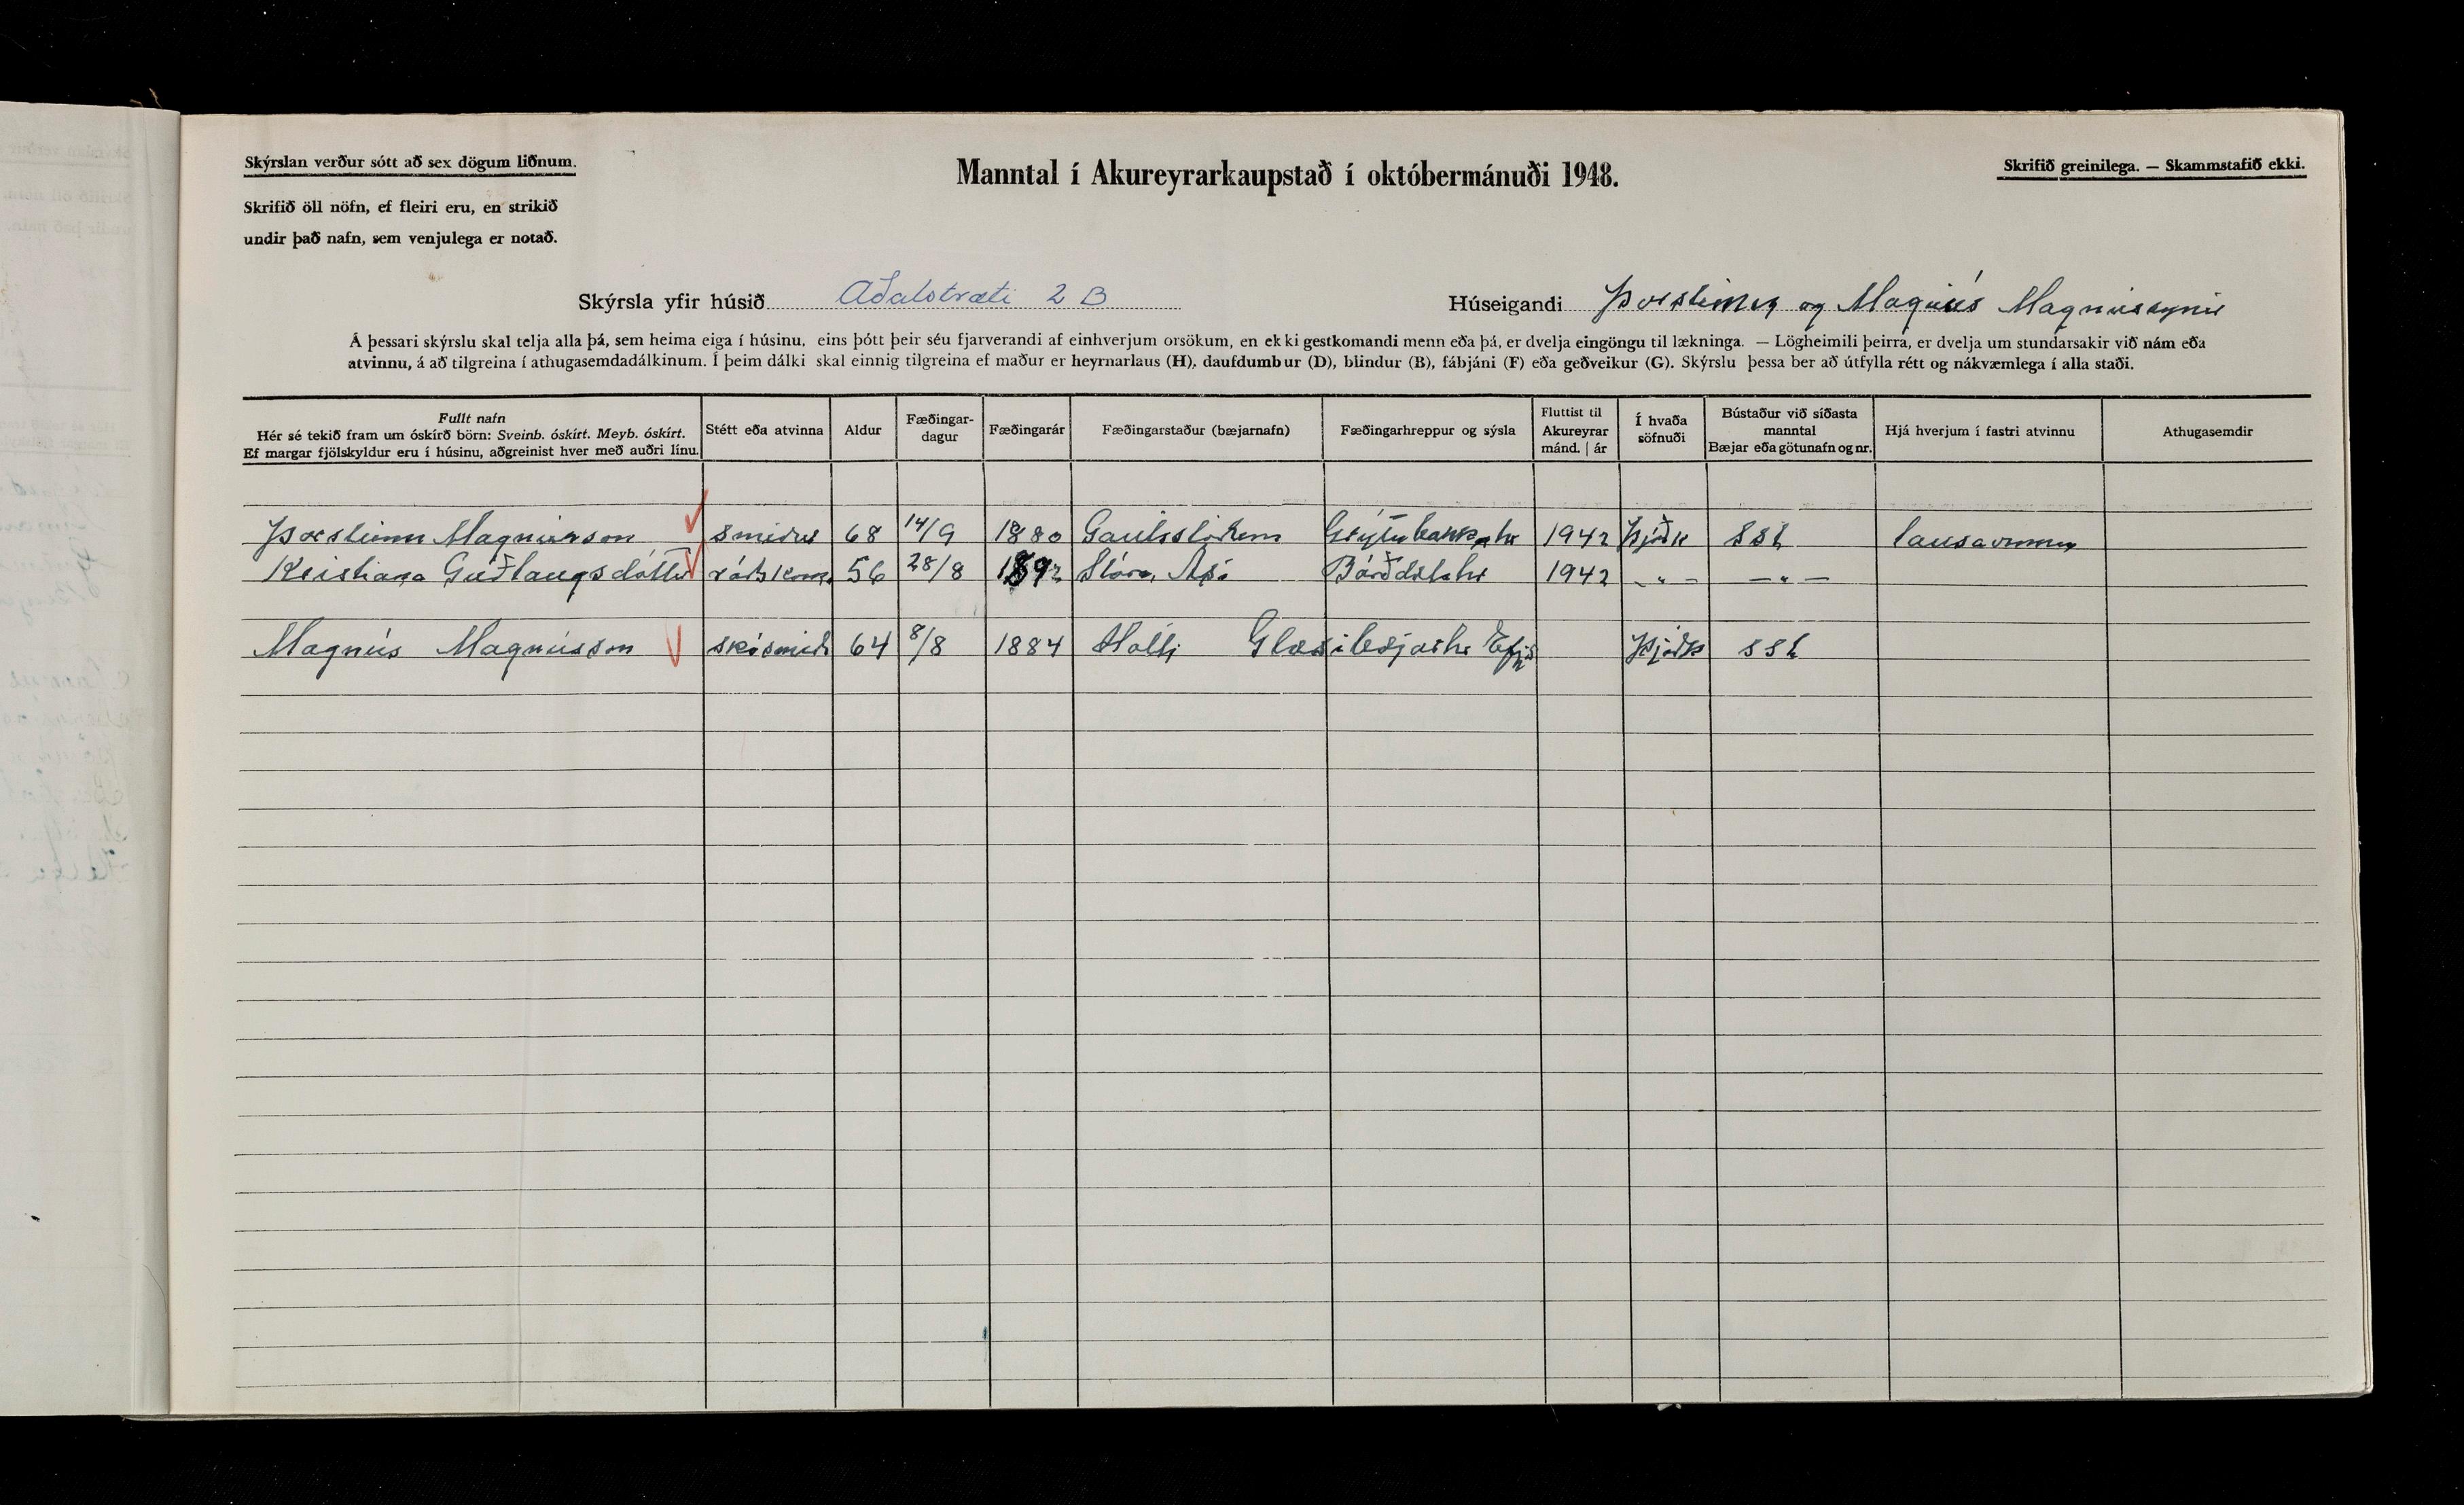 Skýrslan verður sótt að sex dögum liðnum.
Manntal í Akureyrarkaupstað í októbermánuði 1948.
Skrifið greinilega. — Skammstafið ekki.
Skrifið öll nöfn, ef fleiri eru, en strikið
undir það nafn, sem venjulega er notað.
Skýrsla yfir húsið Aðalstræti 2 B
Húseigandi Þorsteinn og Magnús Magnússynir
Á þessari skýrslu skal telja alla þá, sem heima eiga í húsinu, eins þótt þeir séu fjarverandi af einhverjum orsökum, en ekki gestkomandi menn eða þá, er dvelja eingöngu til lækninga. — Lögheimili þeirra, er dvelja um stundarsakir við nám eða
atvinnu, á að tilgreina í athugasemdadálkinum. Í þeim dálki skal einnig tilgreina ef maður er heyrnarlaus (H), daufdumbur (D), blindur (B), fábjáni (F) eða geðveikur (G). Skýrslu þessa ber að útfylla rétt og nákvæmlega í alla staði.
Fullt nafn
Hér sé tekið fram um óskírð börn: Sveinb. óskírt. Meyb. óskírt.
Ef margar fjölskyldur eru í húsinu, aðgreinist hver með auðri línu.
Stétt eða atvinna
Aldur
Fæðingar-
dagur
Fæðingarár
Fæðingarstaður (bæjarnafn)
Fæðingarhreppur og sýsla
Fluttist til
Akureyrar
mánd. | ár
Í hvaða
söfnuði
Bústaður við síðasta
manntal
Bæjar eða götunafn og nr.
Hjá hverjum í fastri atvinnu
Athugasemdir
Þorsteinn Magnússon smiður 68 14/9 1880 1942 Þjóðk SSt lausavinnu
Kristjana Guðlaugsdóttir ráðskona 56 28/8 1892 Stóru Bárðdælahr 1942 — " — — " —
Magnús Magnússon skósmiður 64 8/8 1884 Glæsibæjarhr Efjs Þjóðk SSt